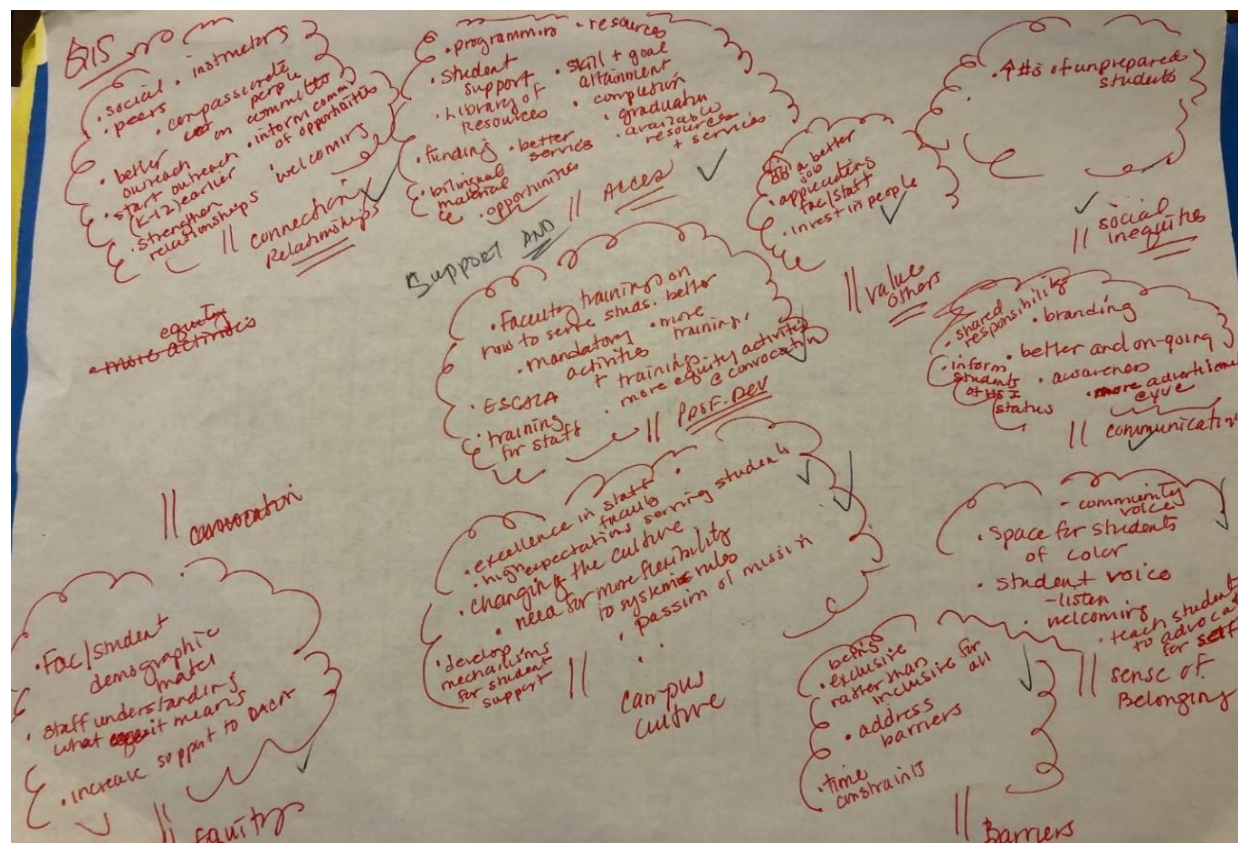 Q15
• social • instructors
• peers
• compassionate
people
on committees
• better
outreach • inform commty
of opportunities
• start outreach
(K-12) earlier
welcoming
• strengthen
relationships
|| connection/
Relationships
• programming • resources
• student
support
• skill + goal
attainment
• Library of
Resources
• completion
• graduation
• funding • better
services
• available
resources
+ services
• bilingual
material
• opportunities
Support AND
|| Access
a better
job
• appreciating
fac/staff
• invest in people
|| value
others
• ↑ #s of unprepared
students
|| social
inequities
equity
• more activities
• Faculty trainings on
how to serve studs. better
• mandatory
activities
• more
trainings
+ trainings
• ESCALA
• more equity activities
@ convocation
• training
for staff
|| Prof. Dev
• shared
responsibility
• branding
• better and on-going
• inform
students
of HSI
status
• awareness
• more advertisement
|| communication
|| convocation
• excellence in staff
faculty
• high expectations serving students
• changing the culture
• need for more flexibility
to systems rules
• passion of mission
• develop
mechanisms
for student
support
|| campus
culture
- community
voice
• space for students
of color
• student voice
- listen
• welcoming
• teach student
to advocate
for self
|| sense of
Belonging
• Fac/student
demographic
match
• staff understanding
what it means
• increase support to DACA
|| Equity
• being
exclusive
rather than
inclusive for
all
• address
barriers
• time
constraints
|| Barriers